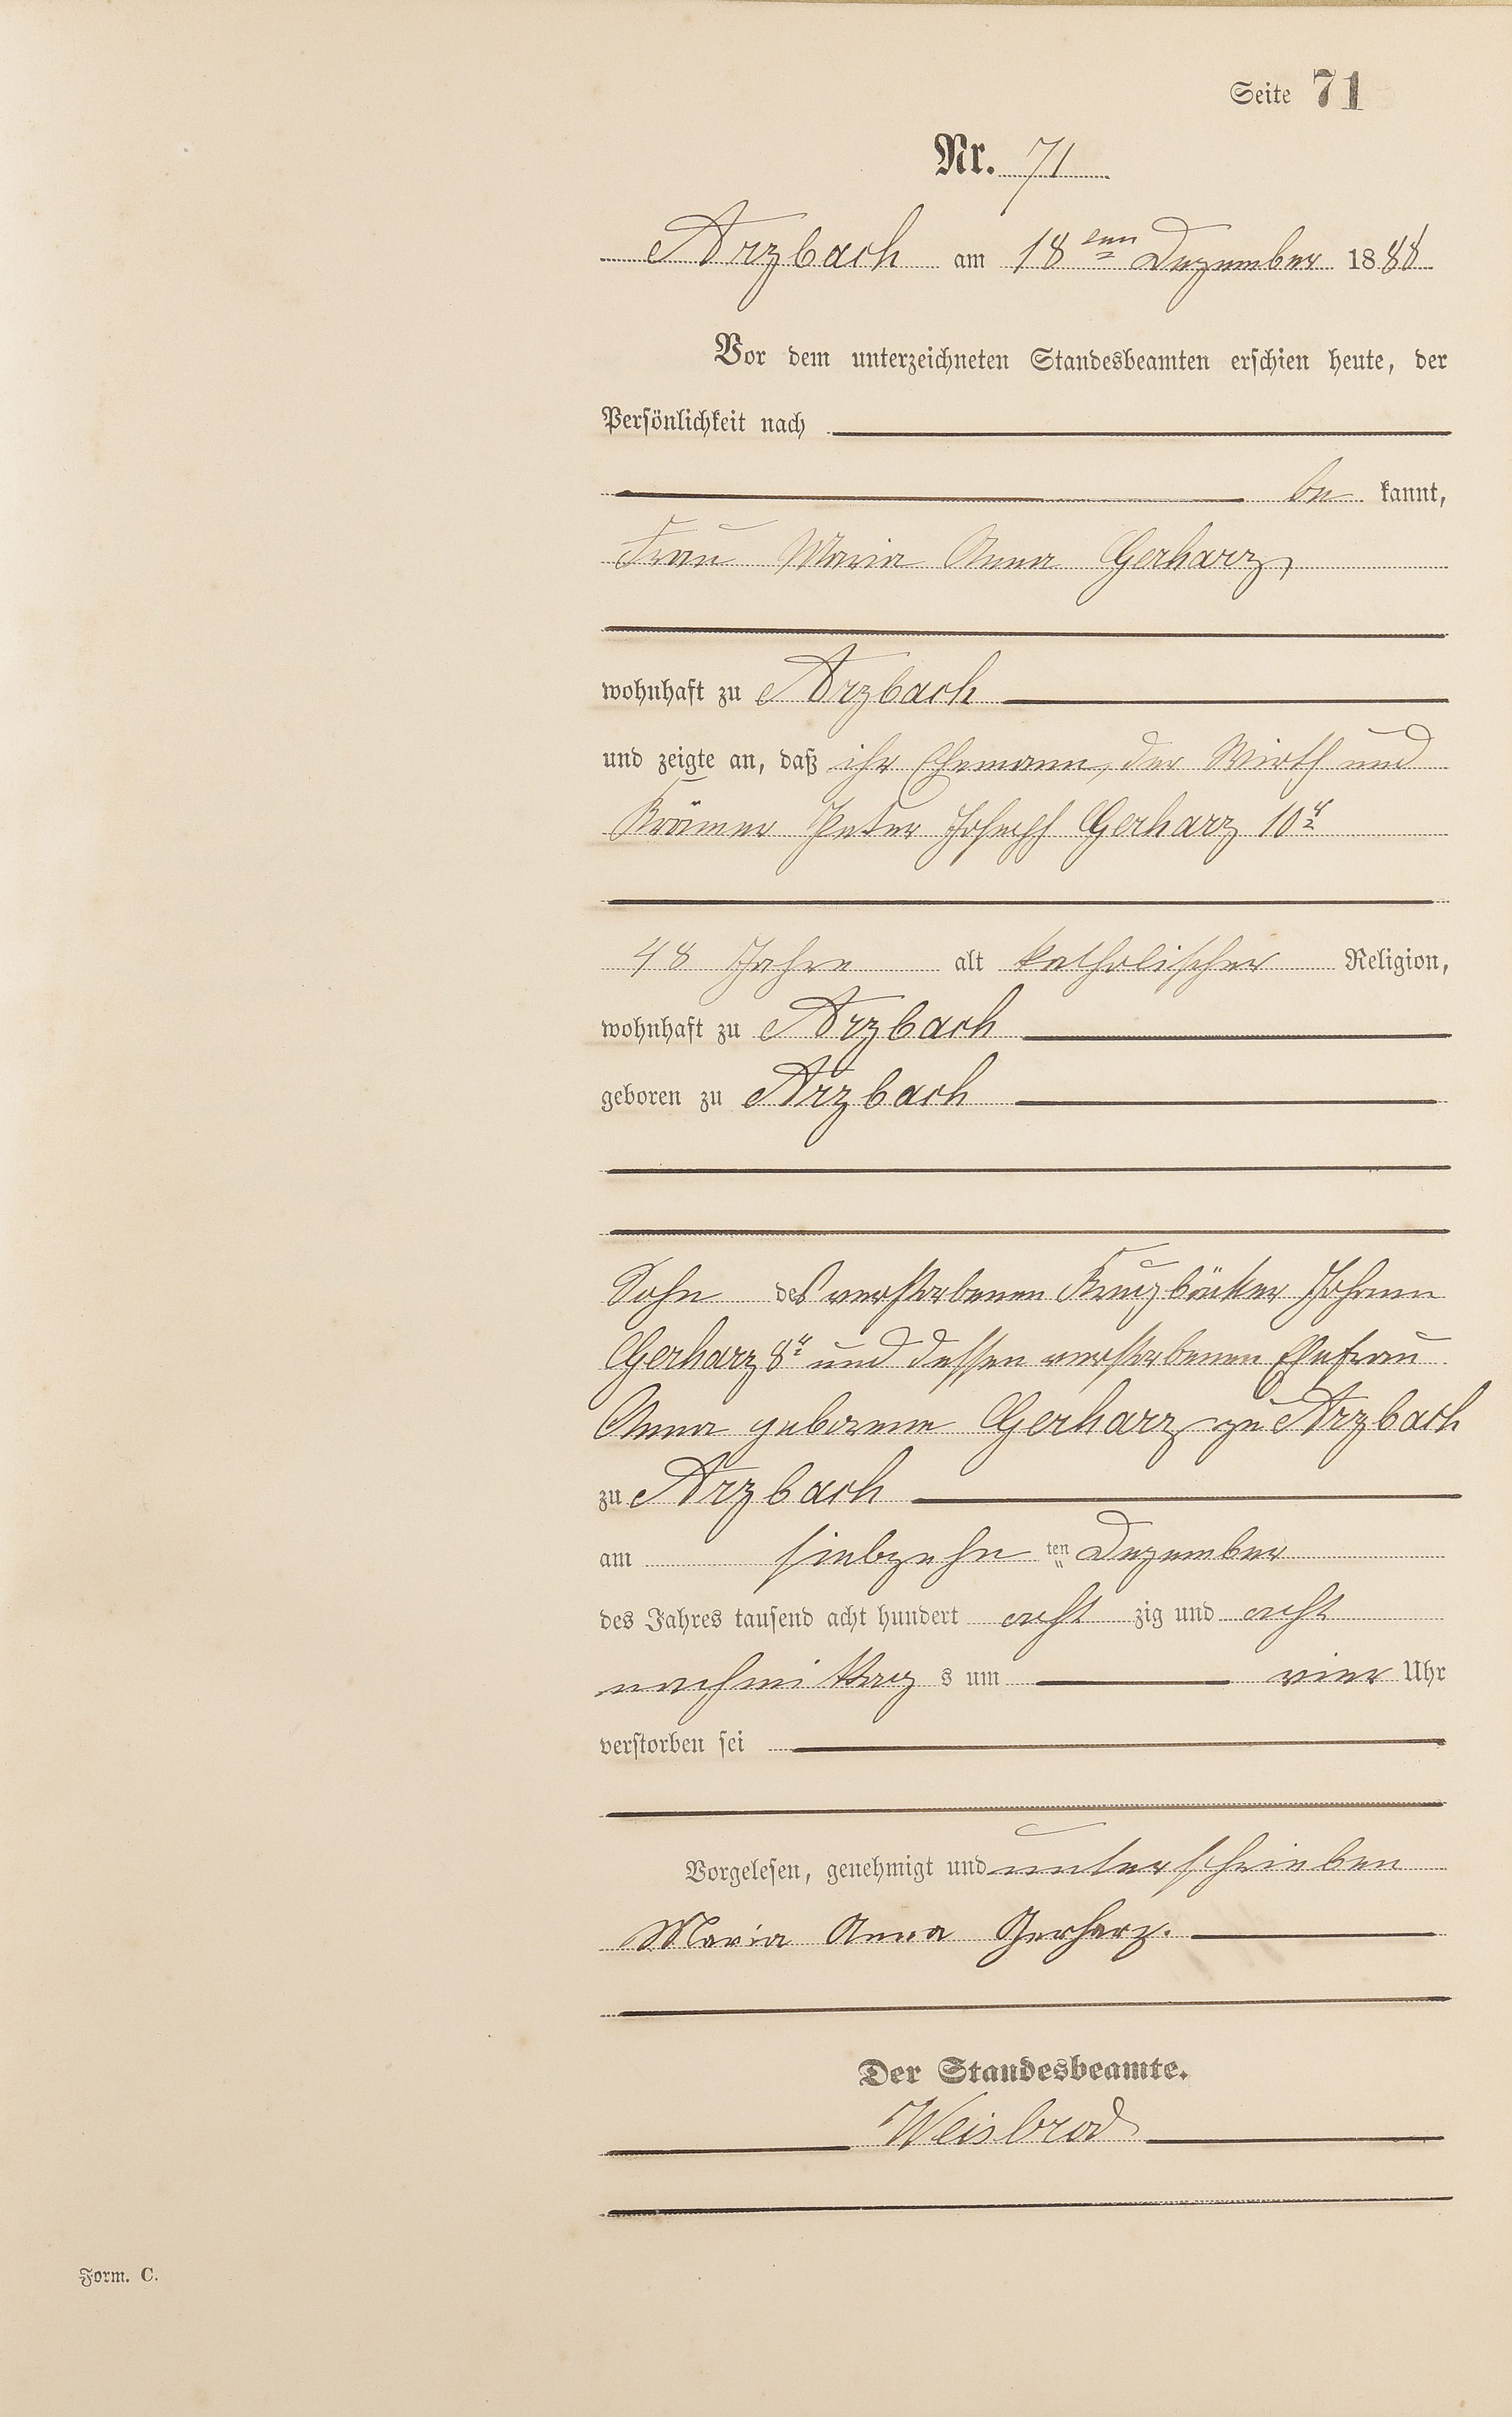 Seite 71
Nr. 71
Arzbach am 18ten Dezember 1888
Vor dem unterzeichneten Standesbeamten erschien heute, der
Persönlichkeit nach
be kannt,
Frau Maria Anna Gerharz,
wohnhaft zu Arzbach
und zeigte an, daß ihr Ehemann, der Wirth und
Krämer Peter Joseph Gerharz 10r
48 Jahre alt katholischer Religion,
wohnhaft zu Arzbach
geboren zu Arzbach
Sohn des verstorbenen Krugbäcker Johann
Gerharz 8r und dessen verstorbenen Ehefrau
Anna geborene Gerharz zu Arzbach
zu Arzbach
am siebzehn ten Dezember
des Jahres tausend acht hundert acht zig und acht
nachmittag s um vier Uhr
verstorben sei
Vorgelesen, genehmigt und unterschrieben
Maria Anna Gerharz.
Der Standesbeamte.
Weisbrod
Form. C.